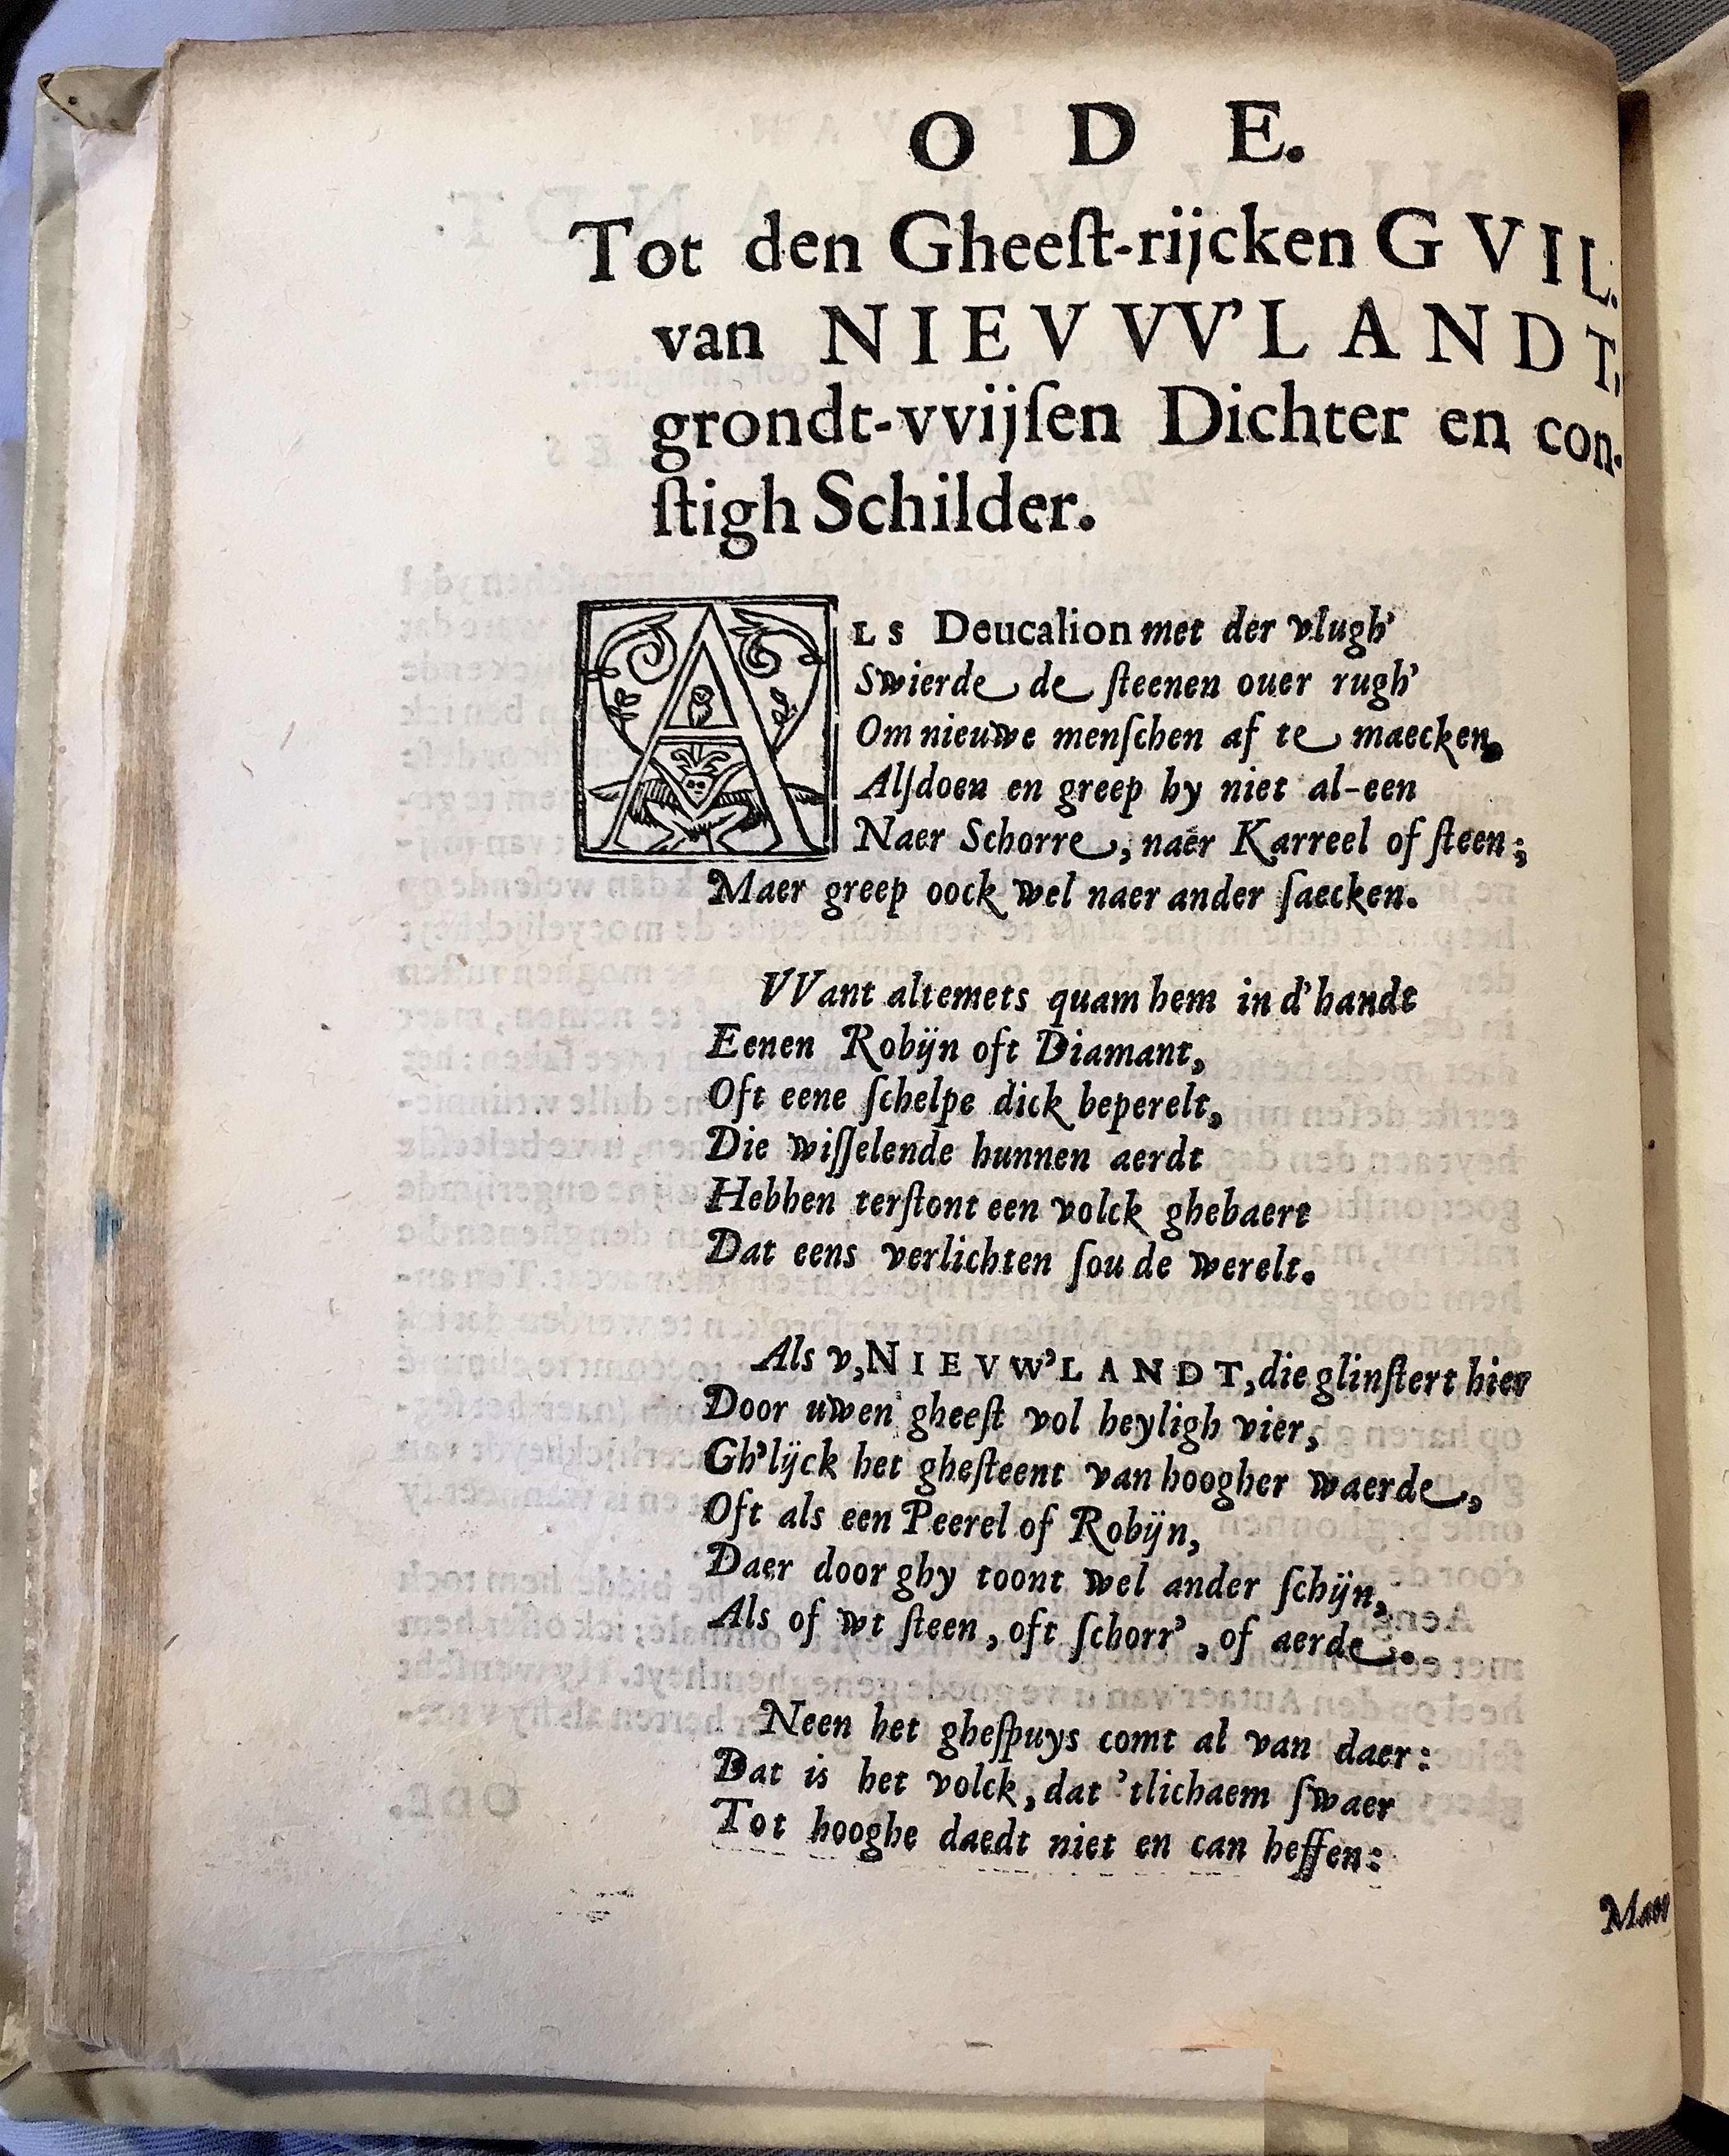 ODE.
Tot den Gheeſt-rijcken GVIL.
van NIEVVV'LANDT,
grondt-vvijſen Dichter en con-
ſtigh Schilder.
ALS Deucalion met der vlugh'
Swierde de ſteenen ouer rugh'
Om nieuwe menſchen af te maecken,
Alſdoen en greep hy niet al-een
Naer Schorre, naer Karreel of ſteen;
Maer greep oock wel naer ander ſaecken.
VVant altemets quam hem in d'handt
Eenen Robijn oft Diamant,
Oft eene ſchelpe dick beperelt,
Die wiſſelende hunnen aerdt
Hebben terſtont een volck ghebaert
Dat eens verlichten ſou de werelt.
Als v, NIEVW'LANDT, die glinſtert hier
Door uwen gheeſt vol heyligh vier,
Gh'lijck het gheſteent van hoogher waerde,
Oft als een Peerel of Robijn,
Daer door ghy toont wel ander ſchijn,
Als of wt ſteen, oft ſchorr', of aerde.
Neen het gheſpuys comt al van daer:
Dat is het volck, dat 'tlichaem ſwaer
Tot hooghe daedt niet en can heffen:
Maer